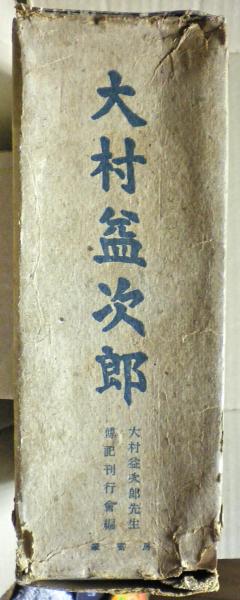 大村益次郎
大村益次郎先生
傳記刊行會編
肇書房